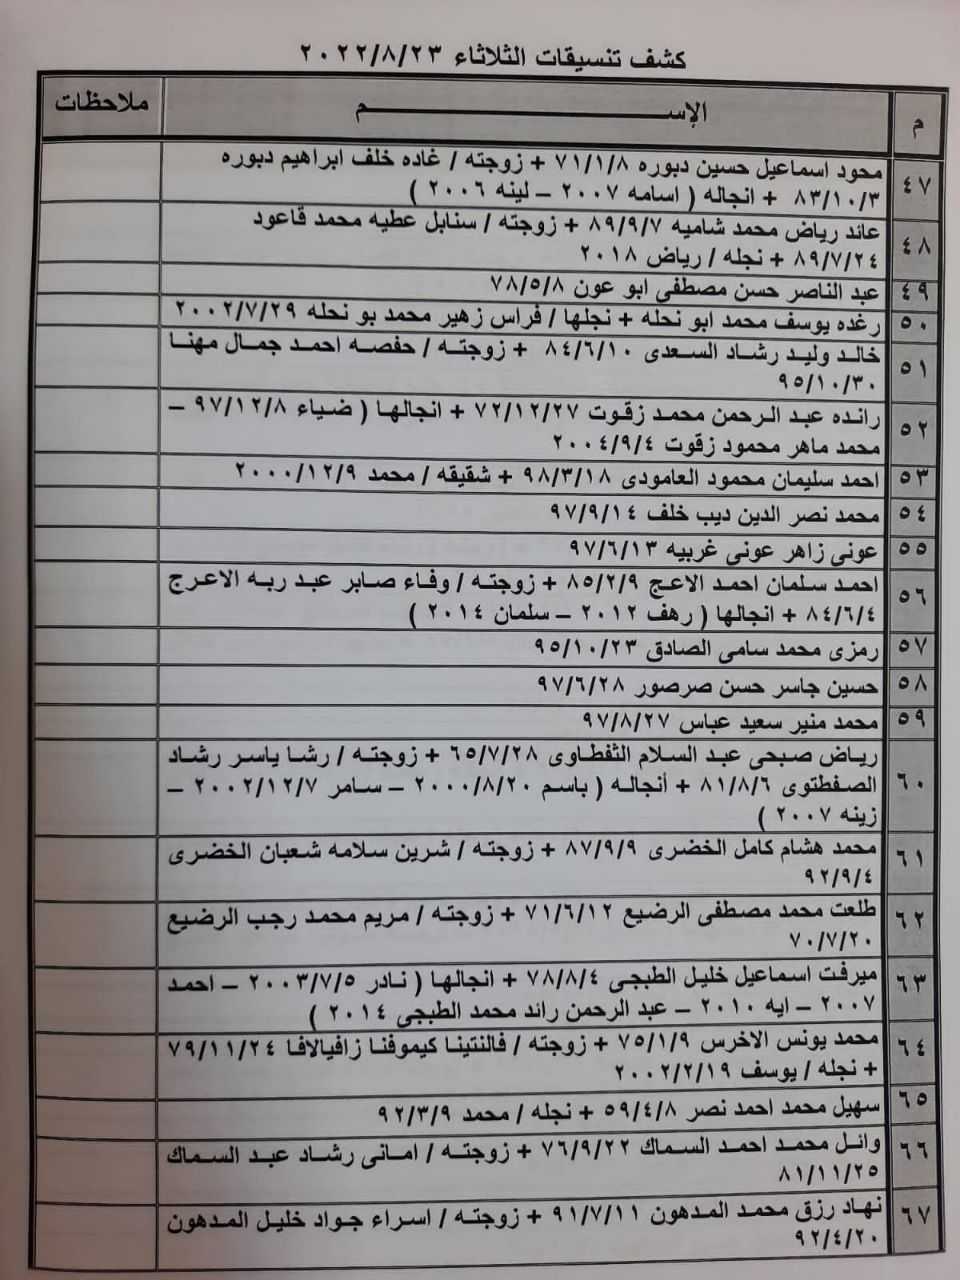 كشف تنسيقات الثلاثاء ٢٠٢٢/٨/٢٣
م الإســـــــم ملاحظات
٤٧ محود اسماعيل حسين دبوره ٧١/١/٨ + زوجته / غاده خلف ابراهيم دبوره
٨٣/١٠/٣ + انجاله ( اسامه ٢٠٠٧ – لينه ٢٠٠٦ )
٤٨ عائد رياض محمد شاميه ٨٩/٩/٧ + زوجته / سنابل عطيه محمد قاعود
٨٩/٧/٢٤ + نجله / رياض ٢٠١٨
٤٩ عبد الناصر حسن مصطفى ابو عون ٧٨/٥/٨
٥٠ رغده يوسف محمد ابو نحله + نجلها / فراس زهير محمد بو نحله ٢٠٠٢/٧/٢٩
٥١ خالد وليد رشاد السعدى ٨٤/٦/١٠ + زوجته / حفصه احمد جمال مهنا
٩٥/١٠/٣٠
٥٢ رائده عبد الرحمن محمد زقوت ٧٢/١٢/٢٧ + انجالها ( ضياء ٩٧/١٢/٨ –
محمد ماهر محمود زقوت ٢٠٠٤/٩/٤
٥٣ احمد سليمان محمود العامودى ٩٨/٣/١٨ + شقيقه / محمد ٢٠٠٠/١٢/٩
٥٤ محمد نصر الدين ديب خلف ٩٧/٩/١٤
٥٥ عونى زاهر عونى غربيه ٩٧/٦/١٣
٥٦ احمد سلمان احمد الاعج ٨٥/٢/٩ + زوجته / وفاء صابر عبد ربه الاعرج
٨٤/٦/٤ + انجالها ( رهف ٢٠١٢ – سلمان ٢٠١٤ )
٥٧ رمزى محمد سامى الصادق ٩٥/١٠/٢٣
٥٨ حسين جاسر حسن صرصور ٩٧/٦/٢٨
٥٩ محمد منير سعيد عباس ٩٧/٨/٢٧
٦٠ رياض صبحى عبد السلام الثفطاوى ٦٥/٧/٢٨ + زوجته / رشا ياسر رشاد
الصفطتوى ٨١/٨/٦ + أنجاله ( باسم ٢٠٠٠/٨/٢٠ – سامر ٢٠٠٢/١٢/٧ –
زينه ٢٠٠٧ )
٦١ محمد هشام كامل الخضرى ٨٧/٩/٩ + زوجته / شرين سلامه شعبان الخضرى
٩٢/٩/٤
٦٢ طلعت محمد مصطفى الرضيع ٧١/٦/١٢ + زوجته / مريم محمد رجب الرضيع
٧٠/٧/٢٠
٦٣ ميرفت اسماعيل خليل الطبجى ٧٨/٨/٤ + انجالها ( نادر ٢٠٠٣/٧/٥ – احمد
٢٠٠٧ – ايه ٢٠١٠ – عبد الرحمن رائد محمد الطبجى ٢٠١٤ )
٦٤ محمد يونس الاخرس ٧٥/١/٩ + زوجته / فالنتينا كيموفنا زافيالافا ٧٩/١١/٢٤
+ نجله / يوسف ٢٠٠٢/٢/١٩
٦٥ سهيل محمد احمد نصر ٥٩/٤/٨ + نجله / محمد ٩٢/٣/٩
٦٦ وائل محمد احمد السماك ٧٦/٩/٢٢ + زوجته / امانى رشاد عبد السماك
٨١/١١/٢٥
٦٧ نهاد رزق محمد المدهون ٩١/٧/١١ + زوجته / اسراء جواد خليل المدهون
٩٢/٤/٢٠